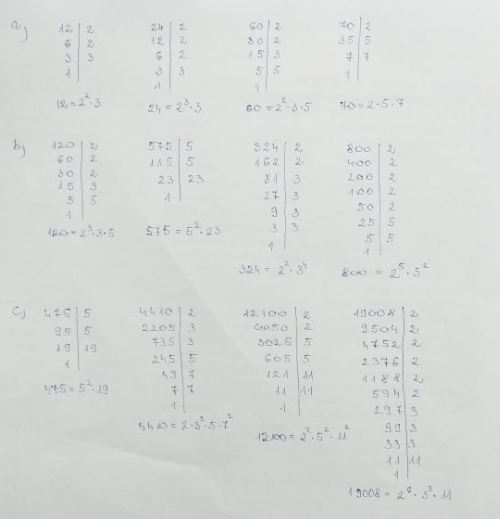 a)
12 | 2
6 | 2
3 | 3
1 |
12 = 2²·3
24 | 2
12 | 2
6 | 2
3 | 3
1 |
24 = 2³·3
60 | 2
30 | 2
15 | 3
5 | 5
1 |
60 = 2²·3·5
70 | 2
35 | 5
7 | 7
1 |
70 = 2·5·7
b)
120 | 2
60 | 2
30 | 2
15 | 3
5 | 5
1 |
120 = 2³·3·5
575 | 5
115 | 5
23 | 23
1 |
575 = 5²·23
324 | 2
162 | 2
81 | 3
27 | 3
9 | 3
3 | 3
1 |
324 = 2²·3⁴
800 | 2
400 | 2
200 | 2
100 | 2
50 | 2
25 | 5
5 | 5
1 |
800 = 2⁵·5²
c)
475 | 5
95 | 5
19 | 19
1 |
475 = 5²·19
4410 | 2
2205 | 3
735 | 3
245 | 5
49 | 7
7 | 7
1 |
4410 = 2·3²·5·7²
12100 | 2
6050 | 2
3025 | 5
605 | 5
121 | 11
11 | 11
1 |
12100 = 2²·5²·11²
19008 | 2
9504 | 2
4752 | 2
2376 | 2
1188 | 2
594 | 2
297 | 3
99 | 3
33 | 3
11 | 11
1 |
19008 = 2⁶·3³·11